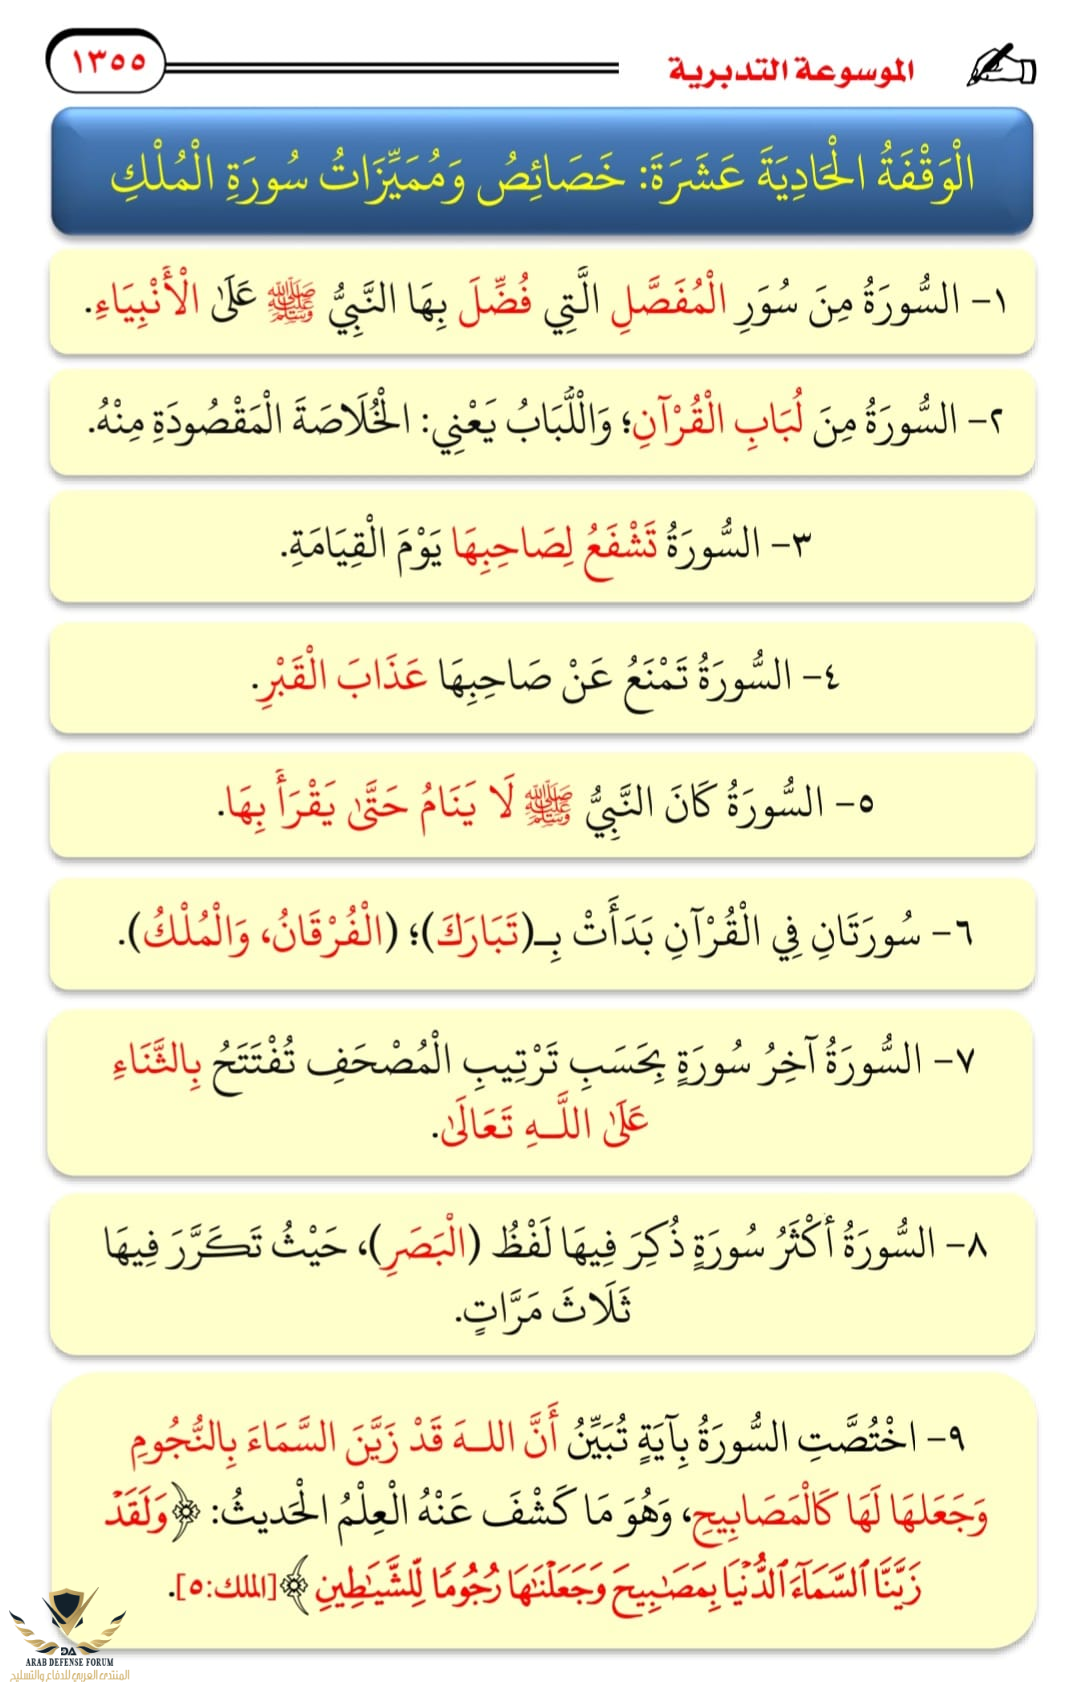 الموسوعة التدبرية
١٣٥٥
الْوَقْفَةُ الْحَادِيَةَ عَشَرَةَ: خَصَائِصُ وَمُمَيِّزَاتُ سُورَةِ الْمُلْكِ
١- السُّورَةُ مِنَ سُوَرِ الْمُفَصَّلِ الَّتِي فُضِّلَ بِهَا النَّبِيُّ ﷺ عَلَى الْأَنْبِيَاءِ.
٢- السُّورَةُ مِنَ لُبَابِ الْقُرْآنِ؛ وَاللُّبَابُ يَعْنِي: الْخُلَاصَةَ الْمَقْصُودَةِ مِنْهُ.
٣- السُّورَةُ تَشْفَعُ لِصَاحِبِهَا يَوْمَ الْقِيَامَةِ.
٤- السُّورَةُ تَمْنَعُ عَنْ صَاحِبِهَا عَذَابَ الْقَبْرِ.
٥- السُّورَةُ كَانَ النَّبِيُّ ﷺ لَا يَنَامُ حَتَّى يَقْرَأَ بِهَا.
٦- سُورَتَانِ فِي الْقُرْآنِ بَدَأَتْ بِـ(تَبَارَكَ)؛ (الْفُرْقَانُ، وَالْمُلْكُ).
٧- السُّورَةُ آخِرُ سُورَةٍ بِحَسَبِ تَرْتِيبِ الْمُصْحَفِ تُفْتَتَحُ بِالثَّنَاءِ
عَلَى اللَّـهِ تَعَالَى.
٨- السُّورَةُ أَكْثَرُ سُورَةٍ ذُكِرَ فِيهَا لَفْظُ (الْبَصَرِ)، حَيْثُ تَكَرَّرَ فِيهَا
ثَلَاثَ مَرَّاتٍ.
٩- اخْتُصَّتِ السُّورَةُ بِآيَةٍ تُبَيِّنُ أَنَّ اللـهَ قَدْ زَيَّنَ السَّمَاءَ بِالنُّجُومِ
وَجَعَلهَا لَهَا كَالْمَصَابِيحِ، وَهُوَ مَا كَشْفَ عَنْهُ الْعِلْمُ الْحَديثُ: ﴿وَلَقَدْ
زَيَّنَّا ٱلسَّمَآءَ ٱلدُّنْيَا بِمَصَٰبِيحَ وَجَعَلْنَٰهَا رُجُومًا لِّلشَّيَٰطِينِ﴾[الملك:٥].
DA
ARAB DEFENSE FORUM
المنتدى العربي للدفاع والتسليح